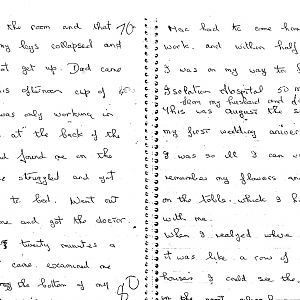 the room and that 70
my legs collapsed and
t get up. Dad came
is afternoon cup of
was only working in
at the back of the
d found me on the
e struggled and got
to bed. Went out
ne and got the doctor.
twenty minutes a
came, examined me
the bottom of my 80
Mac had to come hom
work, and within half
I was on my way to
Isolation Hospital 50 m
from my husband and
This was august the
my first wedding anniver
I was so ill I can
remember my flowers an
on the table, which I h
with me.
When I realized where
it was like a row of
houses I could see the